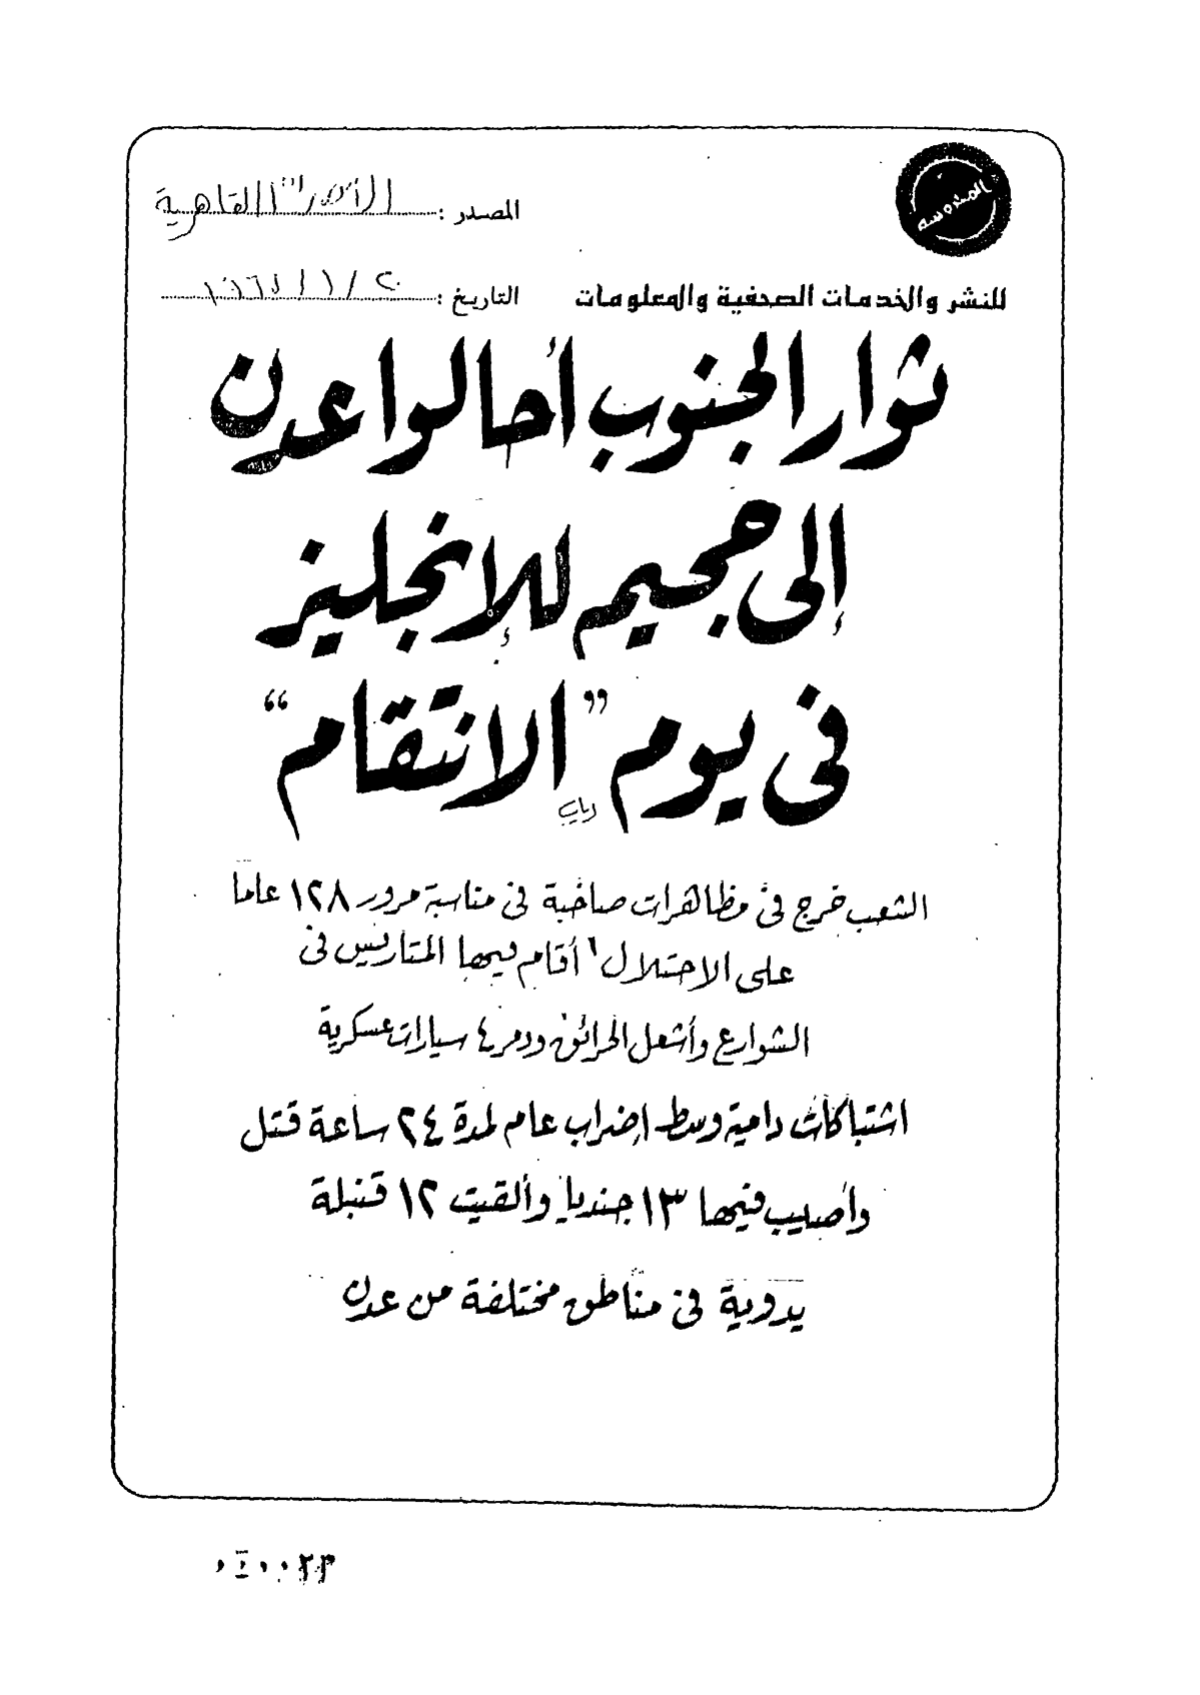 المحروسه
المصدر : الأهرام القاهرية
للنشر والخدمات الصحفية والمعلومات
التاريخ : ٢٠ / ١ / ١٩٦٧
ثوار الجنوب أحالوا عدن
إلى جحيم للإنجليز
فى يوم "الانتقام"
الشعب خرج فى مظاهرات صاخبة فى مناسبة مرور ١٢٨ عاما
على الاحتلال، أقام فيها المتاريس فى
الشوارع وأشعل الحرائق ودمر ٤ سيارات عسكرية
اشتباكات دامية وسط إضراب عام لمدة ٢٤ ساعة قتل
وأصيب فيها ١٣ جنديا وألقيت ١٢ قنبلة
يدوية فى مناطق مختلفة من عدن